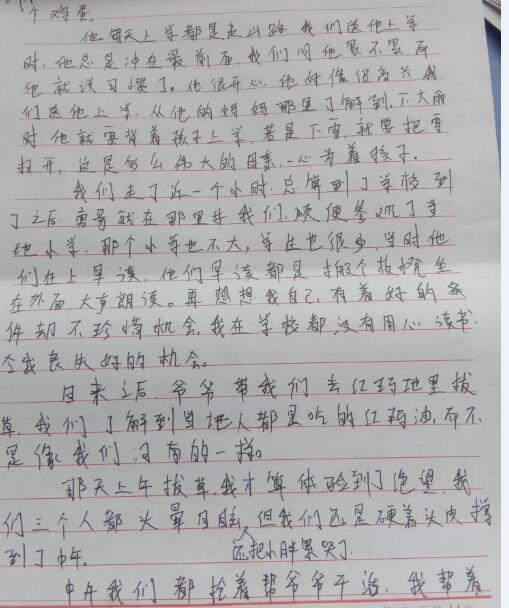 个鸡蛋。
他每天上学都是走山路,我们送他上学
时,他总是冲在最前面,我们问他累不累,而
他就说习惯了。他很开心,他好像很高兴我
们送他上学。从他的妈妈那里了解到,下大雨
时,他就要背着孩子上学,若是下雪,就要把雪
扫开,这是多么伟大的母亲,一心为着孩子。
我们走了近一个小时,总算到了学校,到
了之后,勇哥就在那里等我们,顺便参观了当
地小学,那个小学也不大,学生也很少,当时他
们在上早读,他们早读都是搬个板凳坐
在外面大声朗读。再想想我自己,有着好的条
件却不珍惜机会,我在学校都没有用心读书,
令我丧失好的机会。
回来之后,爷爷带我们去红玛地里拔
草,我们了解到当地人都是吃的红玛油,而不
是像我们河南的一样。
那天上午拔草,我才算体验到了绝望,我
们三个人都头晕目眩,但我们还是硬着头皮撑
到了中午。 还把小胖累哭了
中午我们都抢着帮爷爷干活,我帮着